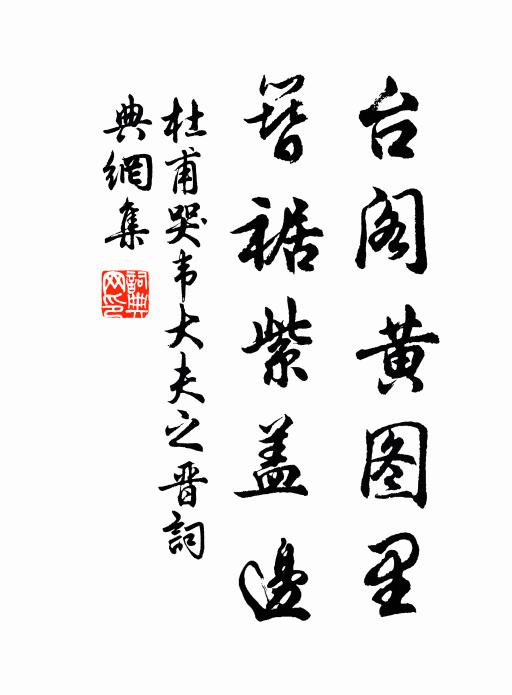 台阁黄图里
簪裾紫盖邊
杜甫哭韦大夫之晋詞
典網集
詞典网印